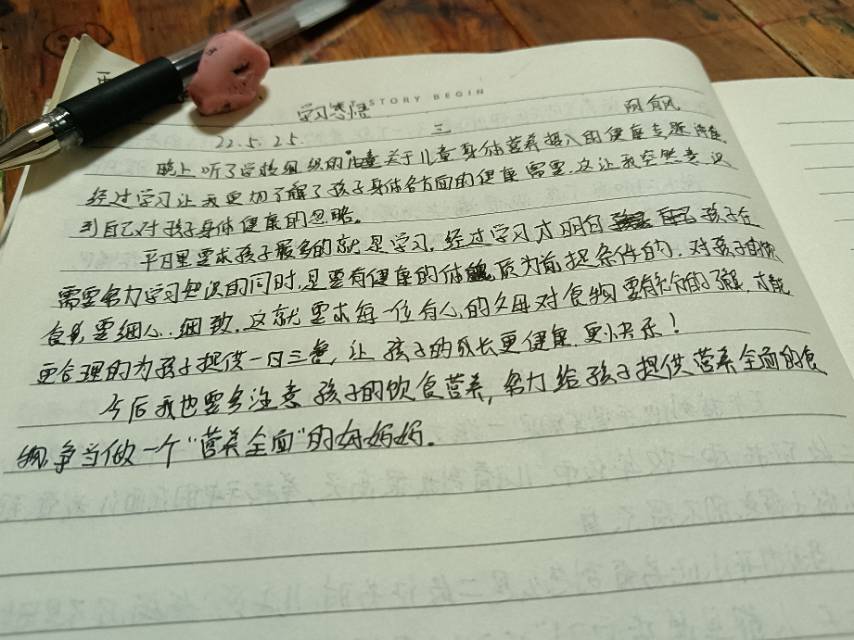 STORY BEGIN
学习感悟
22.5.25. 三 阴有风
晚上听了学校组织的关于儿童身体营养摄入的健康专题讲座.
经过学习让我更加了解了孩子身体各方面的健康需要.这让我突然意识
到自己对孩子身体健康的忽略。
平日里要求孩子最多的就是学习.经过学习才明白 孩子在
需要努力学习知识的同时.是要有健康的体质为前提条件的.对孩子的饮
食要细心.细致.这就要求每一位有心的父母对食物要有全面的了解,才能
更合理的为孩子提供一日三餐,让孩子的成长更健康.更快乐!
今后我也要多注意孩子的饮食营养,努力给孩子提供营养全面的食
物.争当做一个“营养全面”的好妈妈.